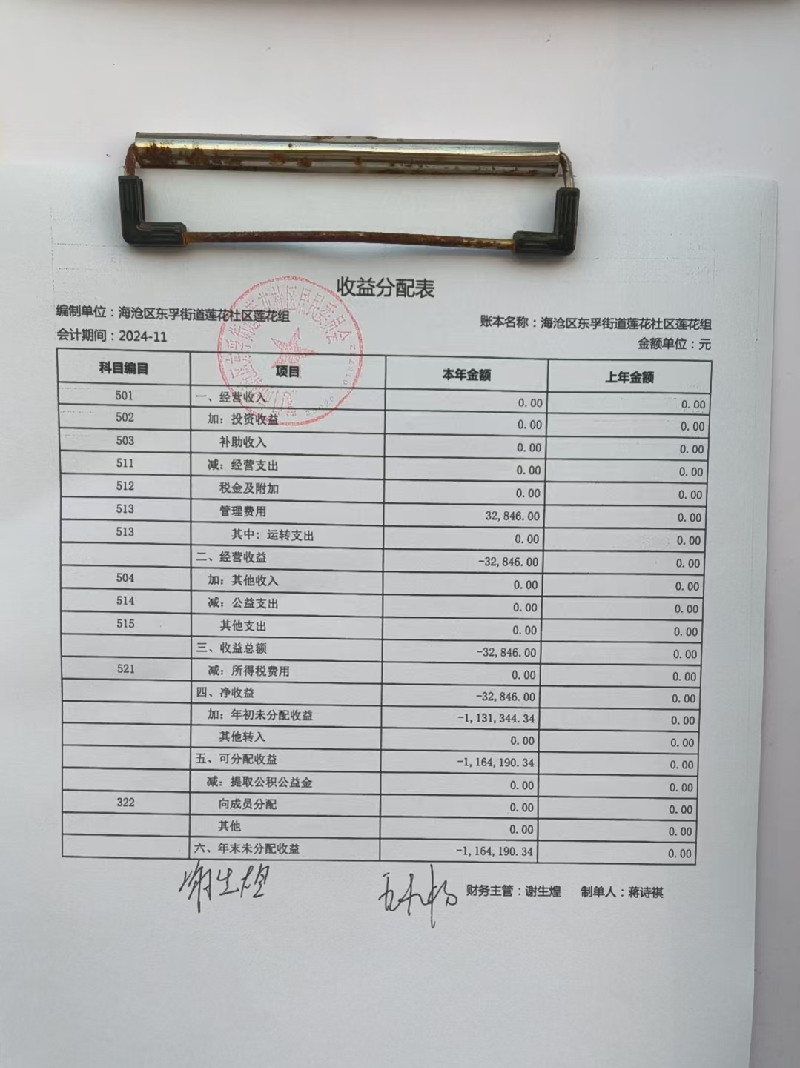 收益分配表
编制单位：海沧区东孚街道莲花社区莲花组 账本名称：海沧区东孚街道莲花社区莲花组
会计期间：2024-11 金额单位：元
科目编目 项目 本年金额 上年金额
501 一、经营收入 0.00 0.00
502 加：投资收益 0.00 0.00
503 补助收入 0.00 0.00
511 减：经营支出 0.00 0.00
512 税金及附加 0.00 0.00
513 管理费用 32,846.00 0.00
513 其中：运转支出 0.00 0.00
二、经营收益 -32,846.00 0.00
504 加：其他收入 0.00 0.00
514 减：公益支出 0.00 0.00
515 其他支出 0.00 0.00
三、收益总额 -32,846.00 0.00
521 减：所得税费用 0.00 0.00
四、净收益 -32,846.00 0.00
加：年初未分配收益 -1,131,344.34 0.00
其他转入 0.00 0.00
五、可分配收益 -1,164,190.34 0.00
减：提取公积公益金 0.00 0.00
322 向成员分配 0.00 0.00
其他 0.00 0.00
六、年末未分配收益 -1,164,190.34 0.00
谢生煌 财务主管：谢生煌 制单人：蒋诗祺